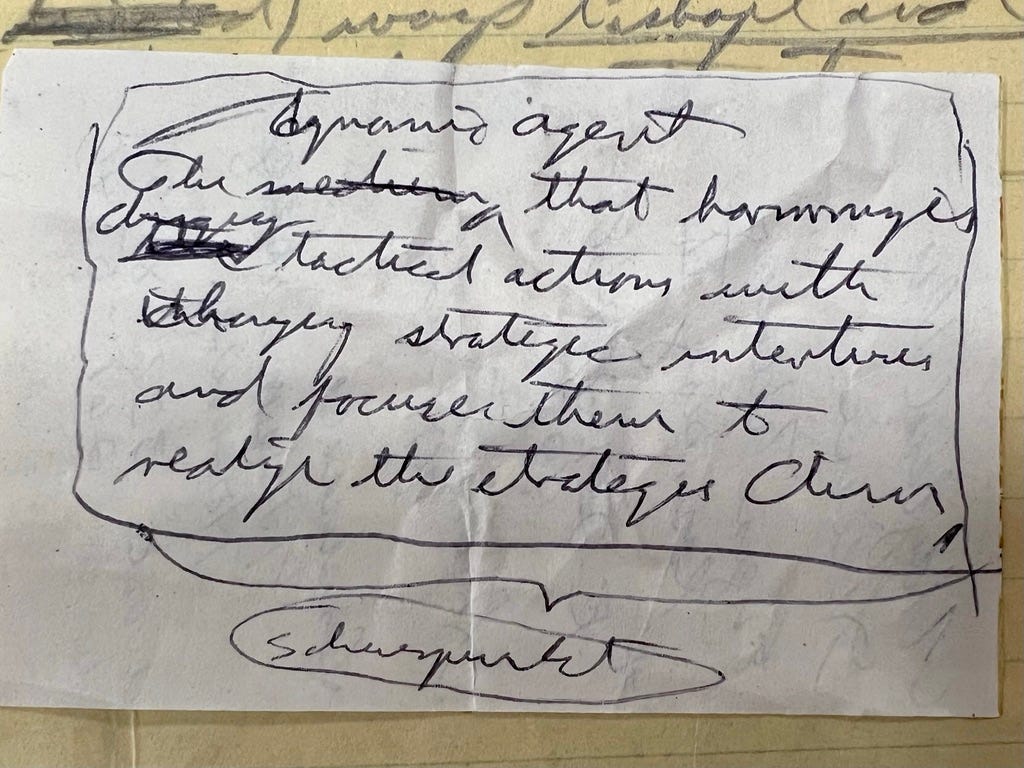 ways and
dynamic agent
The medium that harmonizes
tactical actions with
changing strategic intentions
and focuses them to
realize the strategic
schwerpunkt